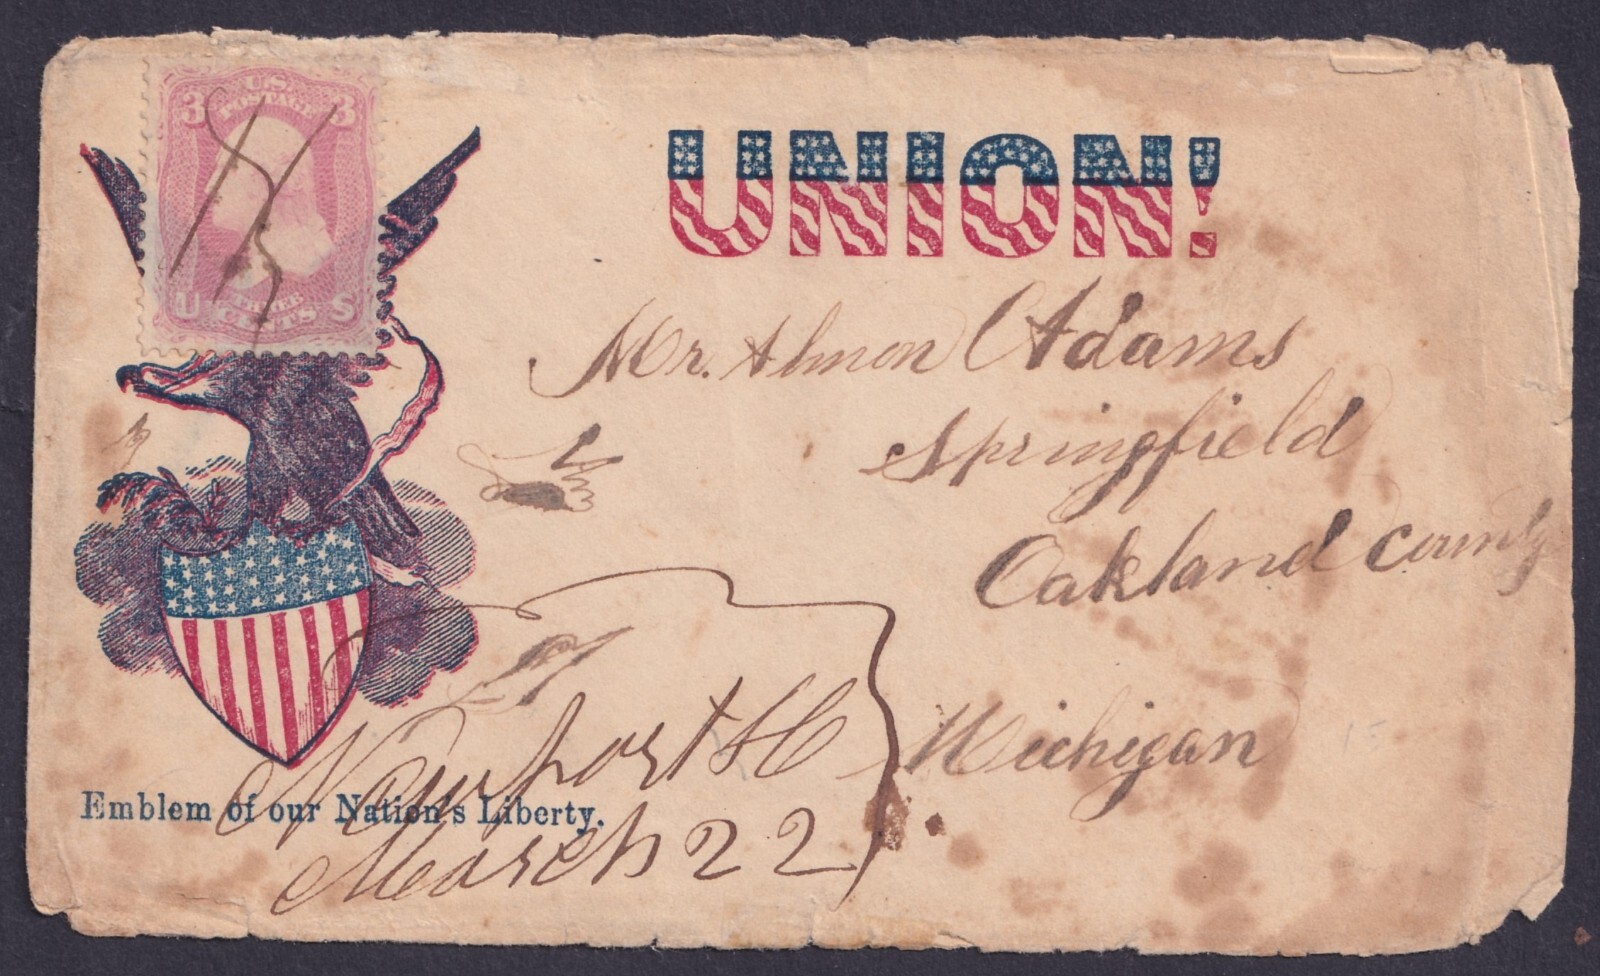 3 U.S. 3
POSTAGE
U THREE S
CENTS
UNION!
Mr. Almon Adams
Springfield
Oakland County
Michigan
Newport
March 22
Emblem of our Nation's Liberty.